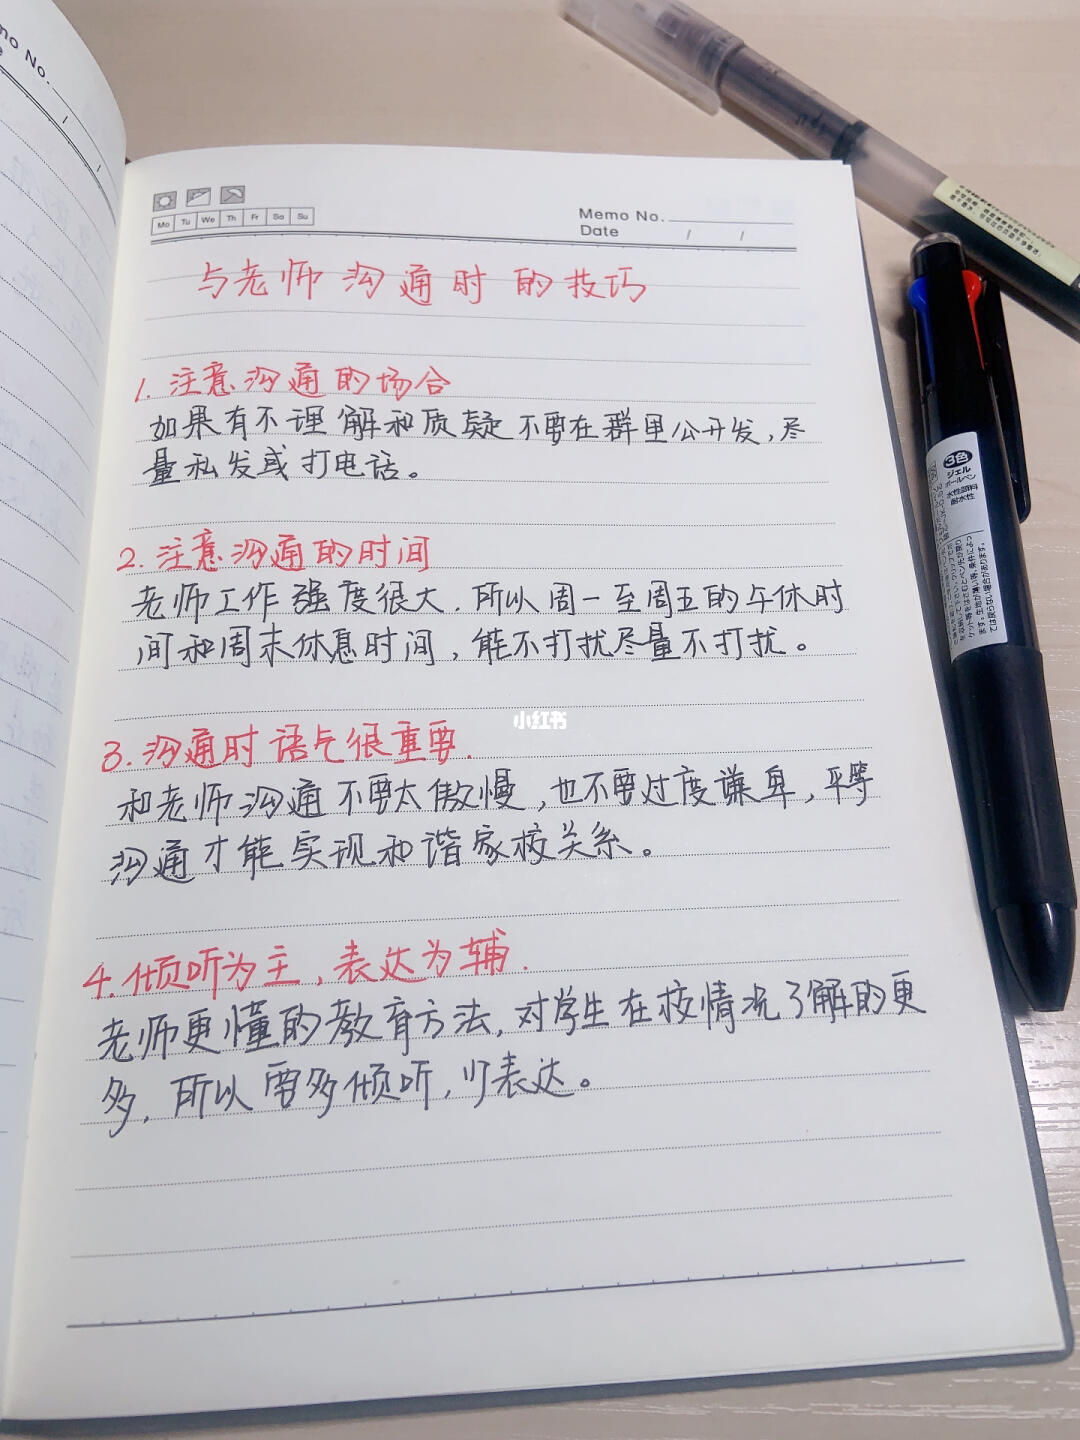 mo No.
Mo Tu We Th Fr Sa Su
Memo No.
Date / /
与老师沟通时的技巧
1. 注意沟通的场合
如果有不理解和质疑不要在群里公开发,尽
量私发或打电话。
2. 注意沟通的时间
老师工作强度很大.所以周一至周五的午休时
间和周末休息时间,能不打扰尽量不打扰。
3. 沟通时语气很重要.
和老师沟通不要太傲慢,也不要过度谦卑,平等
沟通才能实现和谐家校关系。
4. 倾听为主,表达为辅.
老师更懂的教育方法,对学生在校情况了解的更
多,所以要多倾听,少表达。
小红书
3色
ジェル
ボールペン
水性顔料
耐水性